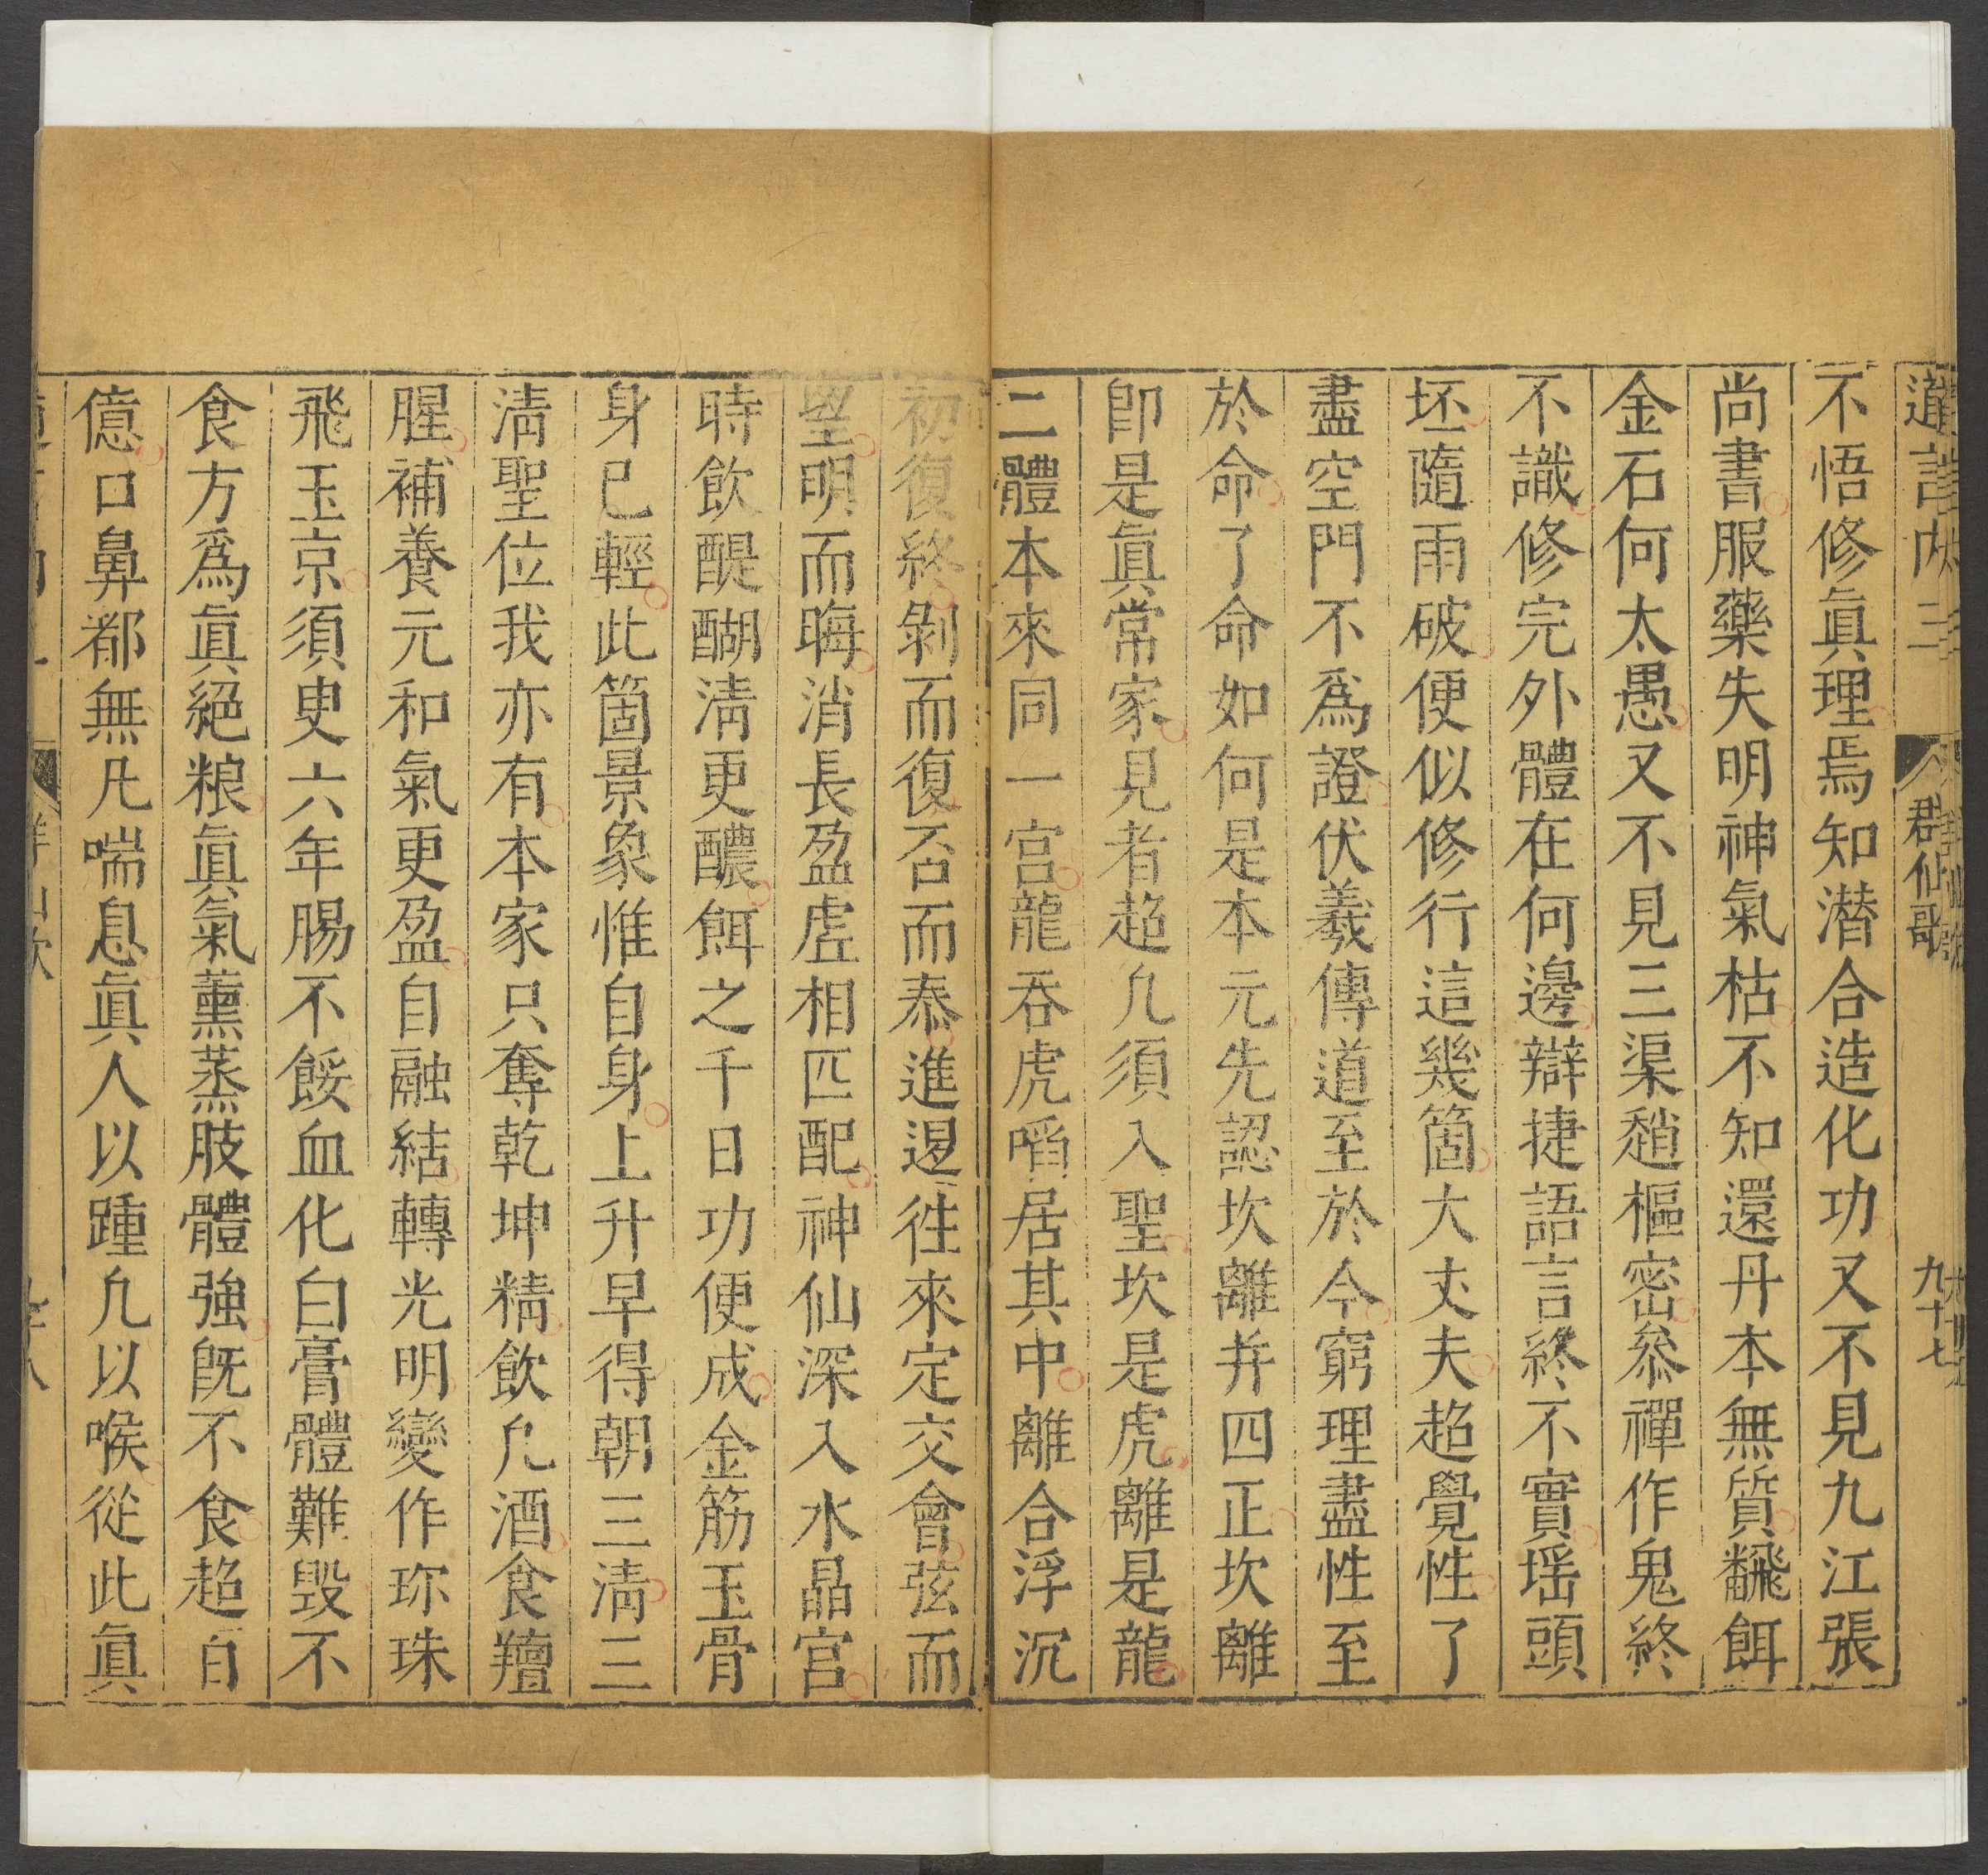 群仙歌
九十七
不悟修眞理焉知潛合造化功又不見九江張
尚書服藥失明神氣枯不知還丹本無質飜餌
金石何太愚又不見三渠趙樞密叅禪作鬼終
不識修完外體在何邊辯捷語言終不實瑶頭
坯隨雨破便似修行這幾箇大丈夫超覺性了
盡空門不爲證伏羲傳道至於今窮理盡性至
於命了命如何是本元先認坎離并四正坎離
卽是眞常家見者超凣須入聖坎是虎離是龍
二體本來同一宮龍吞虎啗居其中離合浮沉
初復終剝而復否而泰進退徃來定交會弦而
望明而晦消長盈虛相匹配神仙深入水晶宮
時飲醍醐淸更醲餌之千日功便成金筋玉骨
身已輕此箇景象惟自身上升早得朝三淸三
淸聖位我亦有本家只奪乾坤精飲凣酒食羶
腥補養元和氣更盈自融結轉光明變作珎珠
飛玉京須臾六年腸不餒血化白膏體難毀不
食方爲眞絕粮眞氣薰蒸肢體強旣不食超百
億口鼻都無凣喘息眞人以踵凣以喉從此眞